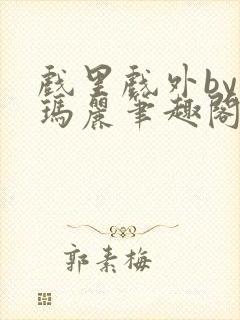 戲里戲外by
瑪麗筆趣閣
郭素梅